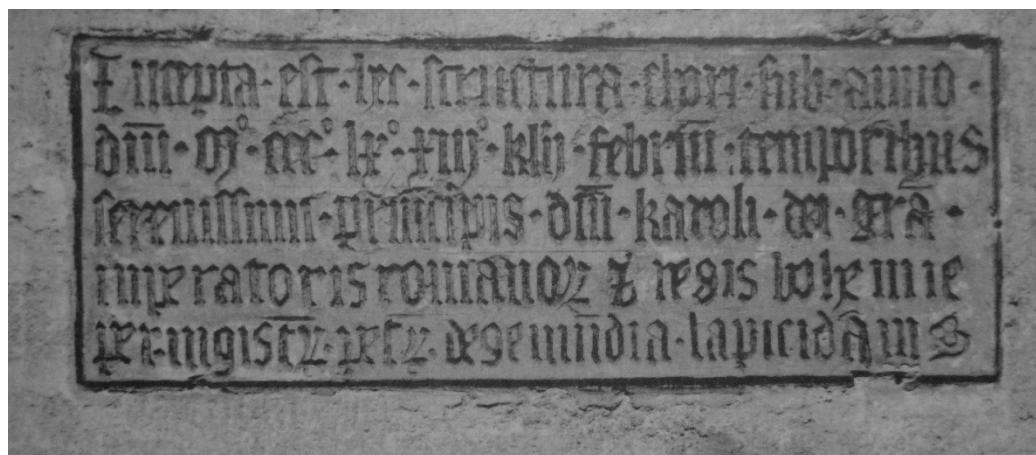 Incepta · est · hec · structura · chori · sub · anno ·
dm̄i · mº · cccº · lxº · xiijº · klȳ · febrm̄ · temporibus
serenissimi · prīncipis · dm̄i · karoli · dei · grā ·
imperatoris romanoꝝ ⁊ regis bohemie
per · mgistꝝ̄ · petꝝ̄ · degemūndia · lapicidā in